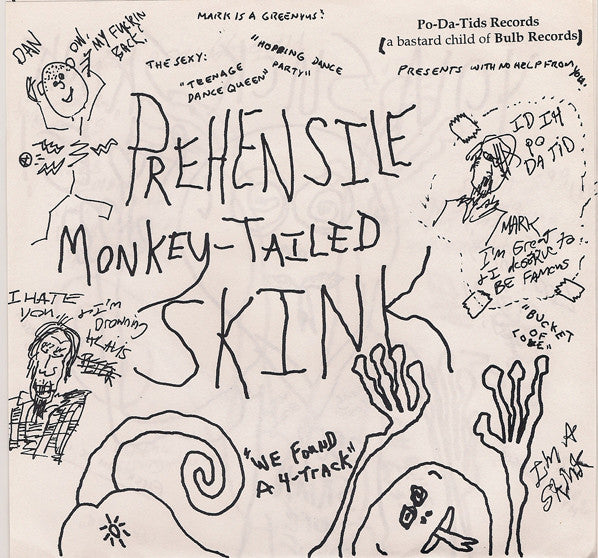 MARK IS A GREENYUS!
Po-Da-Tids Records
[a bastard child of Bulb Records]
PRESENTS WITH NO HELP FROM YOU.
DAN
OW,
MY FUCKIN
BACK!
THE SEXY:
"TEENAGE
DANCE QUEEN"
"HOPPING DANCE
PARTY"
PREHENSILE
MONKEY-TAILED
SKINK
PO
DA TID
MARK
I'm Great
& I deserve to
BE FAMOUS
I HATE
YOU.
& I'm
DROWING
"BUCKET
OF
"WE FOUND
A 4-TRACK"
I'M A